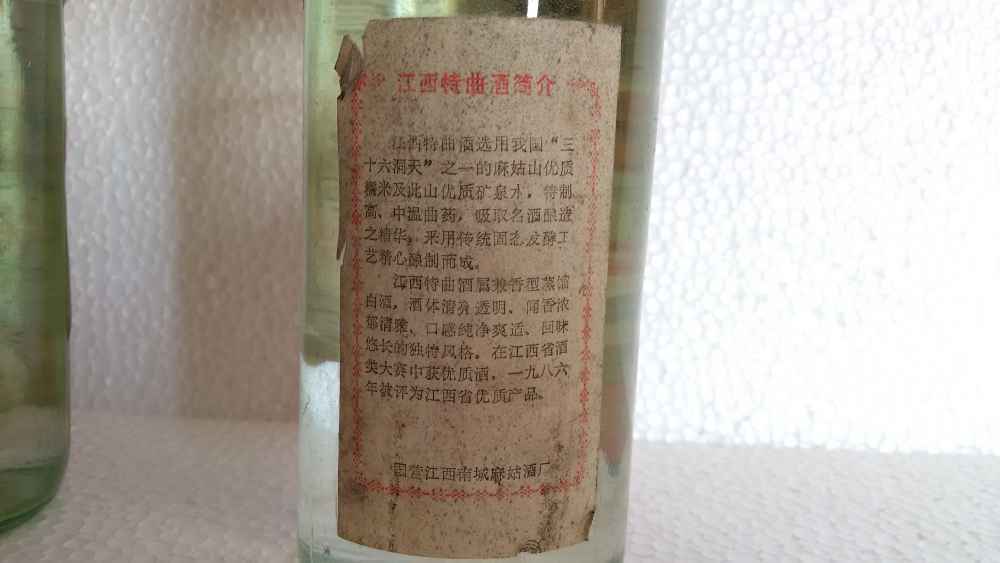 江西特曲酒简介
江西特曲酒选用我国“三
十六洞天”之一的麻姑山优质
糯米及此山优质矿泉水，特制
高、中温曲药，吸取名酒酿造
之精华，采用传统固态发酵工
艺精心酿制而成。
江西特曲酒属粮香型蒸馏
白酒，酒体清亮透明、闻香浓
郁清雅、口感纯净爽适、回味
悠长的独特风格，在江西省酒
类大赛中获优质酒，一九八六
年被评为江西省优质产品。
国营江西南城麻姑酒厂